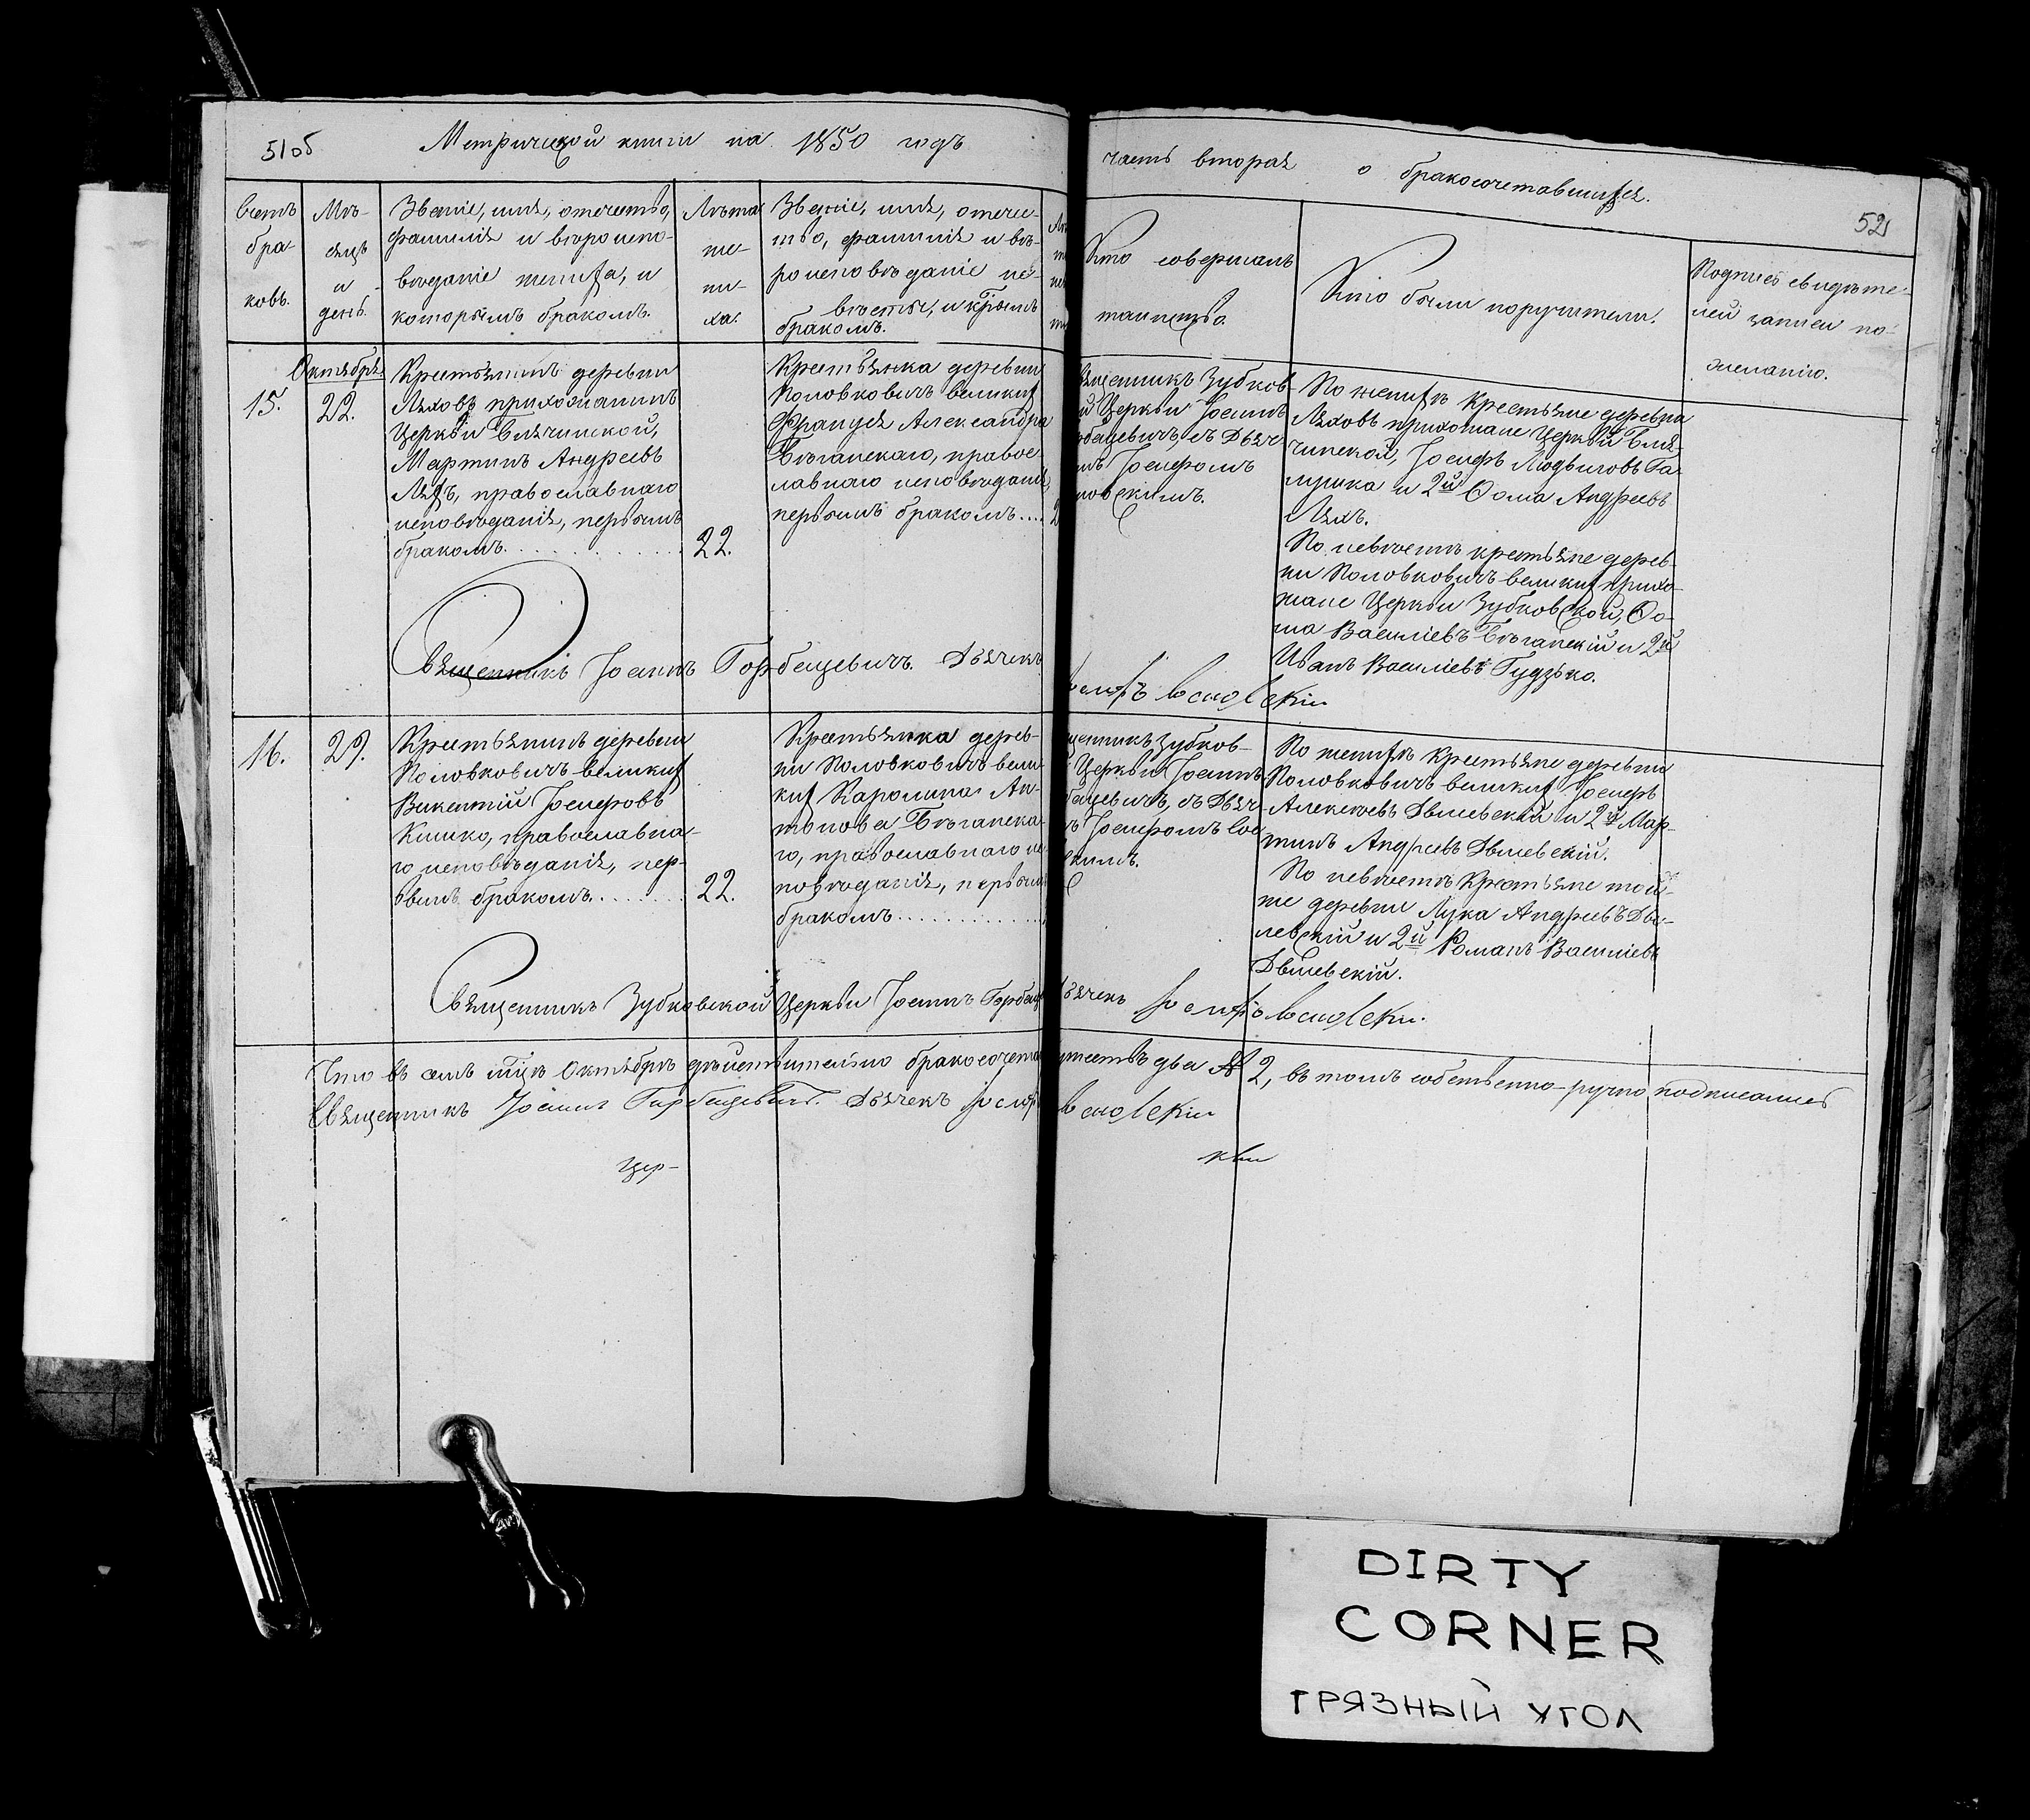 51об
Метрической книги на 1850 годъ
часть вторая о бракосочетавшихся.
52
Счетъ бра-ковъ.
Мѣ-сяцъ и день.
Званіе, имя, отечество,
фамилія и вѣроиспо-
вѣданіе жениха, и
которымъ бракомъ.
Лѣта
же-
ни-
ха.
Званіе, имя, отече-
ство, фамилія и вѣ-
роисповѣданіе не-
вѣсты, и которымъ
бракомъ.
Кто совершалъ
таинство.
Кто были поручители.
Подписъ свидѣте-
лей записи по
желанію.
Октября
15.
22.
Крестьянинъ деревни
Ляховъ прихожанинъ
Церкви
Мартинъ Андреевъ
Ляхъ, православнаго
исповѣданія, первымъ
бракомъ
22.
Крестьянка деревни
Половковичъ великих
Француся Александра
Бѣганскаго, правос
лавнаго исповѣданія,
первымъ бракомъ....
Священникъ Зубков-
й Церкви Іоаннъ
бацевичъ, съ Дьяч-
мъ Іосифомъ
новскимъ.
По женихѣ крестьяне деревни
Ляховъ прихожане Церкви Бля-
чинской, Іосифъ Людвиговъ Га-
лушка и 2й Ѳома Андреевъ
Ляхъ.
По невѣстѣ крестьяне дерев-
ни Половковичъ великих прихо-
жане Церкви Зубковской, Ѳо-
ма Василіевъ Бѣганскій и 2й
Иванъ Василіевъ Гудзько.
Священникъ Іоаннъ Горбацевичъ. Дьячекъ
16.
29.
Крестьянинъ деревни
Половковичъ великих
Викентій Іосифовъ
Кишко, православна-
го исповѣданія, пер-
вымъ бракомъ
22.
Крестьянка дерев-
ни Половковичъ вели
ких Каролина Ан-
тонова Бѣганска-
го, православнаго ис
повѣданія, первымъ
бракомъ
щенникъ Зубков-
Церкви Іоаннъ
бацевичъ, съ Дьяч-
ъ Іосифомъ Сос
скимъ.
По женихѣ Крестьяне деревни
Половковичъ великих Іосифъ
Алексѣевъ Двилевскій и 2й Мар-
тинъ Андреевъ Двилевскій.
По невѣстѣ Крестьяне той-
же деревни Лука Андреевъ Дви-
левскій и 2й Романъ Василіевъ
Двилевскій.
Священникъ Зубковской Церкви Іоаннъ Горбац Дьячекъ
Что въ семъ мцѣ Октябрѣ дѣйствительно бракосочета жествъ два № 2, въ томъ собственно-ручно подписались
Священникъ Іоаннъ Горбацевичъ. Дьячекъ
Цер-
кви
DIRTY
CORNER
ГРЯЗНЫЙ УГОЛ